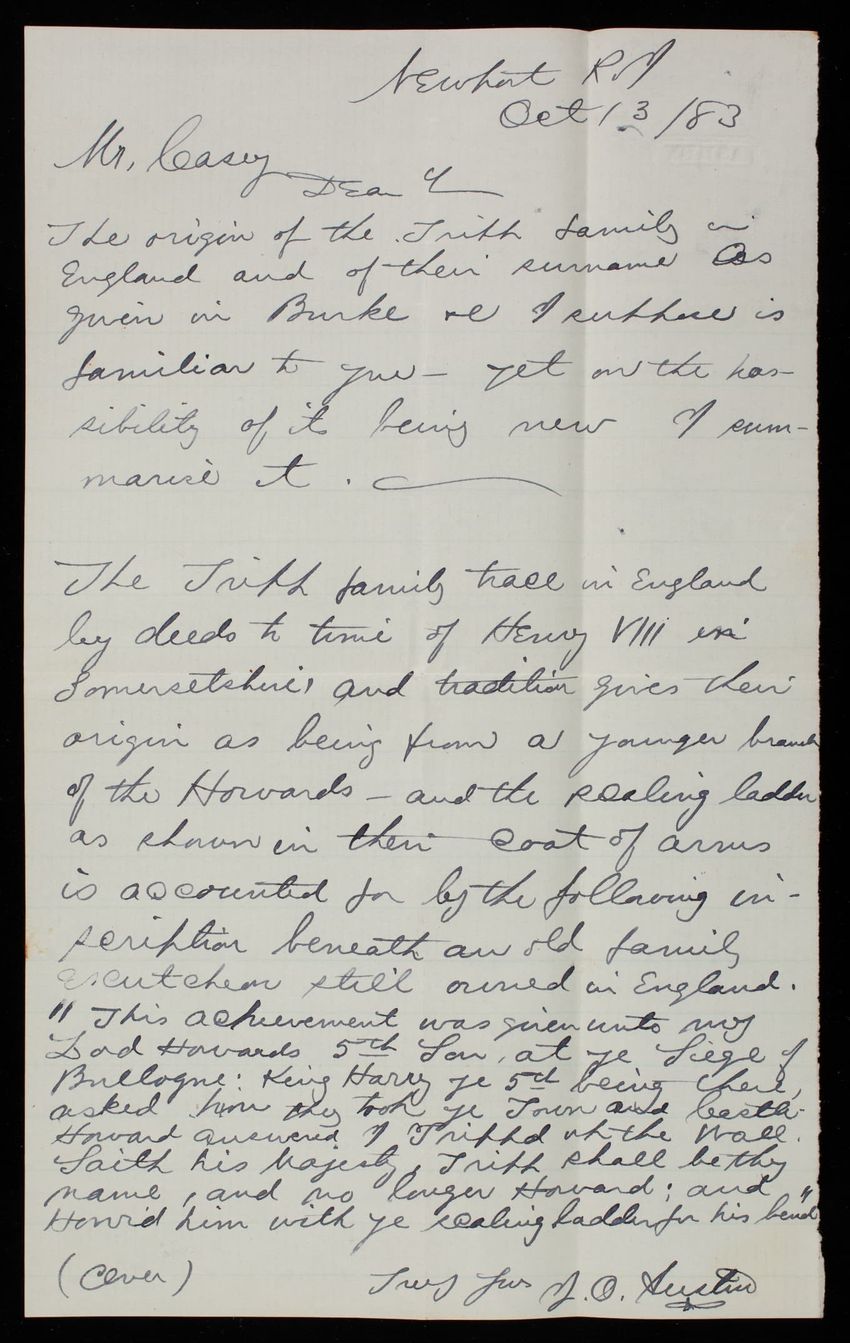 Newport R I
Oct 13/83
Mr, Casey
Dear
The origin of the Tripp family in
England and of their surname as
given in Burke I suppose is
familiar to you — yet on the pos-
sibility of its being new I sum-
marise it .
The Tripp family trace in England
by deeds to time of Henry VIII in
Somersetshire, and tradition gives their
origin as being from a younger branch
of the Howards — and the scaling ladder
as shown in their coat of arms
is accounted for by the following in-
scription beneath an old family
escutcheon still owned in England.
" This achievement was given unto my
Lord Howards 5th Son, at ye Siege of
Bullogne: King Harry ye 5th being there,
asked how they took ye Town and Castle.
Howard answered I Tripp'd up the Wall.
Saith his Majesty, Tripp shall be thy
name, and no longer Howard; and
Honrd him with ye scaling ladder for his bend"
(Over)
Truly yrs J. O. Austin